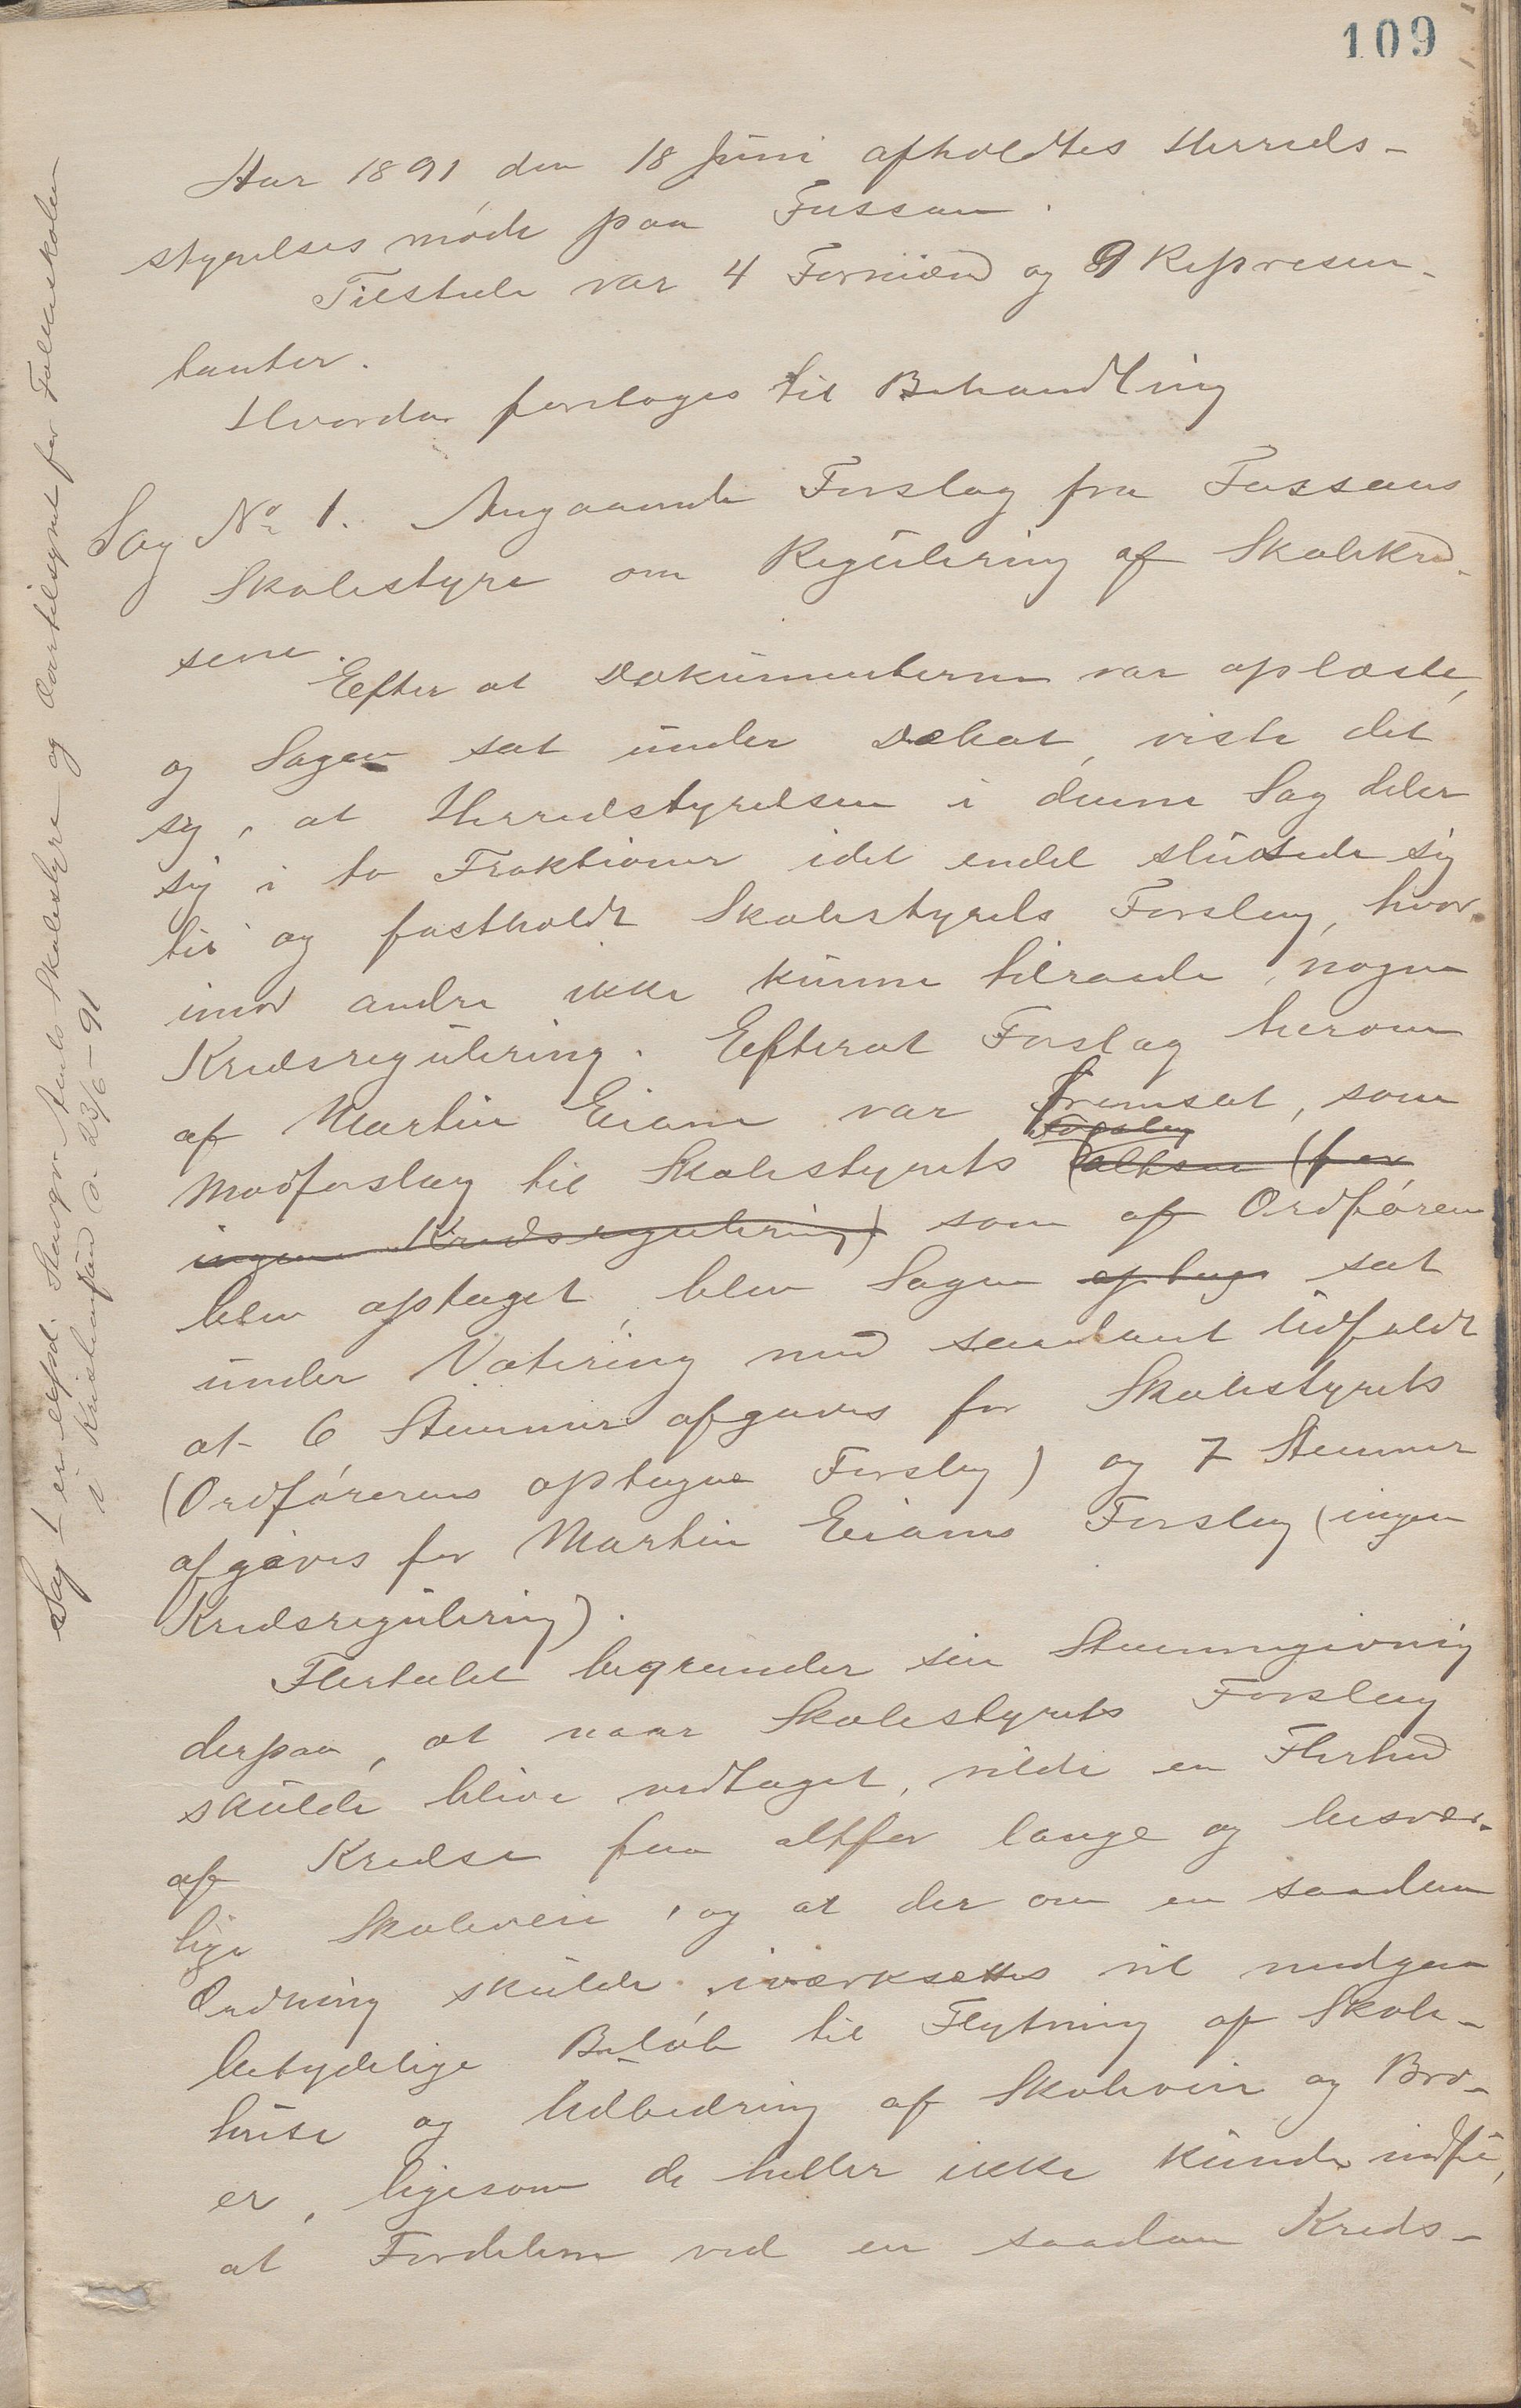 109
Aar 1891 den 18 Juni afholdtes Herreds-
styrelses møde paa Fossan.
Tilstede var 4 Formænd og 9 Repræsen-
tanter.
Hvorda foretoges til Behandling
Sag No 1. Angaaende Forslag fra Fossans
Skolestyre om Regulering af Skolekred-
sene.
Efter at Dokumenterne var oplæste,
og Sagen sat under Debat, viste det
sig, at Herredstyrelsen i denne Sag deler
sig i to Fraktioner idet endel sluttede sig
til og fastholdt Skolestyrets Forslag, hvor-
imod andre ikke kunne tilraade nogen
Kredsregulering. Efterat Forslag herom
af Martin Eiane var fremsat, som
Forslag
Modforslag til Skolestyrets (altsaa (for
ingen Kredsregulering) som af Ordføren
blev optaget, blev Sagen optag sat
under Votering med saadant Udfaldt
at 6 Stemmer afgaves for Skolestyrets
(Ordførerens optagne Forslag) og 7 Stemmer
afgaves for Martin Eianes Forslag (ingen
Kredsregulering).
Flertalet begrunder sin Stemmegivning
derpaa, at naar Skolestyrets Forslag
skulde blive vedtaget, vilde en Flerhed
af Kredse faa altfor lange og besvær-
lige Skoleveie, og at der om en saadan
Ordning skulde iværksættes vil medgaa
betydelige Beløb til Flytning af Skole-
huse og Udbedring af Skoleveie og Bro-
er, ligesom de heller ikke kunde indse,
at Fordelene ved en saadan Kreds-
Sag 1 er expd. Stavgr. Amts Skolestyre og Overtilsynet for Folkeskolen
i Kristiansand d. 23/6-91